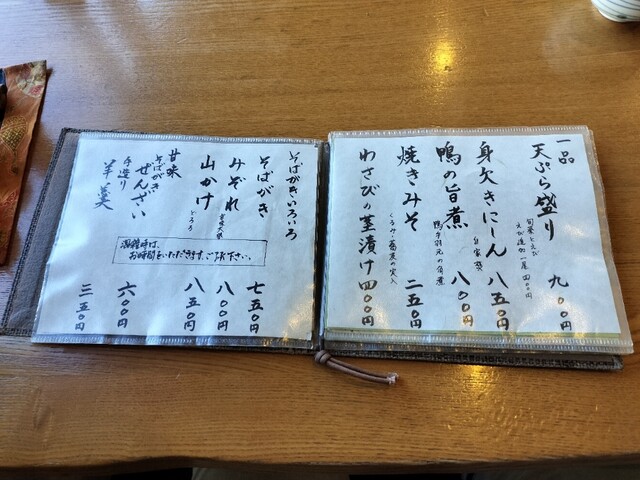 一品
天ぷら盛り 九〇〇円
旬菜とえび
えび追加一尾 四〇〇円
身欠きにしん 八五〇円
自家製
鴨の旨煮 八〇〇円
焼きみそ 二五〇円
くるみ・蕎麦の実入
わさびの茎漬け 四〇〇円
そばがきいろいろ
そばがき 七五〇円
みぞれ 八〇〇円
山かけ 八五〇円
とろろ
混雑時は、
お時間をいただきます。ご了承下さい。
甘味
そばがき
ぜんざい 六〇〇円
手造り
羊羹 三五〇円